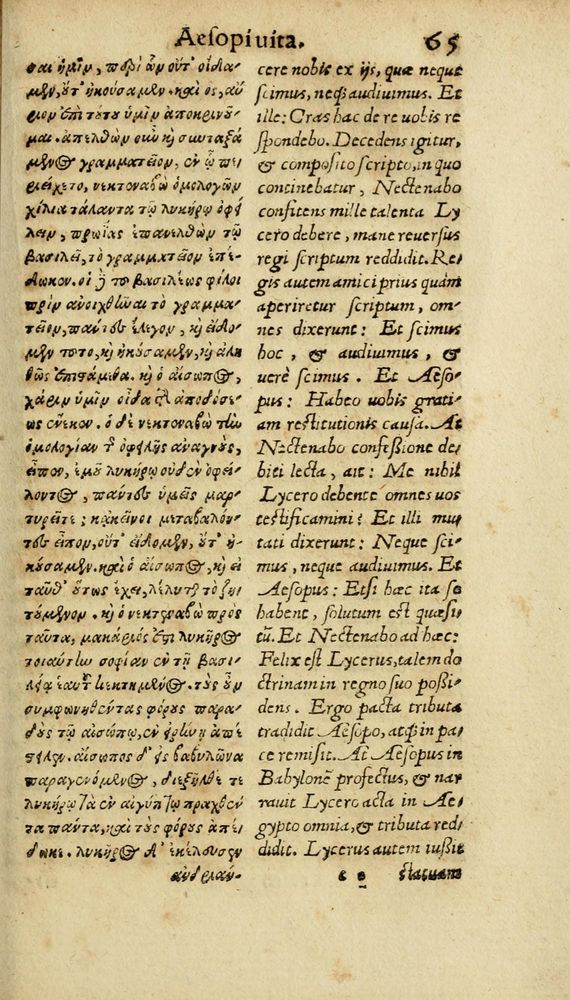 Aesopi vita. 65
σαι ἡμῖν, περὶ ὧν οὔτ' οἴδα-
μεν, οὔτ' ἠκούσαμεν. καὶ ὃς, αὔ-
ριον ἐπὶ τούτου ὑμῖν ἀποκρινοῦ-
μαι. ἀπελθὼν οὖν καὶ συνταξά-
μενος γραμματεῖον, ἐν ᾧ πε-
ριείχετο, νεκτοναβὼ ὁμολογῶν
χίλια τάλαντα τῷ λυκήρῳ ὀφεί-
λειν, πρωΐας ἐπανελθὼν τῷ
βασιλεῖ, τὸ γραμματεῖον ἐπέ-
δωκεν. οἱ δὲ τοῦ βασιλέως φίλοι
πρὶν ἀνοιχθῆναι τὸ γραμμα-
τεῖον, πάντες ἔλεγον, καὶ εἴδο-
μεν τοῦτο, καὶ ἠκούσαμεν, καὶ ἀλη-
θῶς ἐπιστάμεθα. καὶ ὁ αἴσωπος,
χάριν ὑμῖν οἶδα τῆς ἀποδόσε-
ως ἕνεκεν. ὁ δὲ νεκτοναβὼ τὴν
ὁμολογίαν τῆς ὀφειλῆς ἀναγνοὺς,
εἶπεν, ἐμοῦ λυκήρῳ οὐδὲν ὀφεί-
λοντος, πάντες ὑμεῖς μαρ-
τυρεῖτε; κἀκεῖνοι μεταβαλόν-
τες εἶπον, οὔτ' εἴδομεν, οὔτ' ἠ-
κούσαμεν. καὶ ὁ αἴσωπος, καὶ εἰ
ταῦθ' οὕτως ἔχει, λέλυται τὸ ζη-
τούμενον. καὶ ὁ νεκτεναβὼ πρὸς
ταῦτα, μακάριός ἐστι λυκῆρος
τοιαύτην σοφίαν ἐν τῇ βασι-
λείᾳ ἑαυτοῦ κεκτημένος. τοὺς οὖν
συμφωνηθέντας φόρους παρα-
δοὺς τῷ αἰσώπῳ, ἐν εἰρήνῃ ἀπέ-
στειλεν. αἴσωπος δ' εἰς βαβυλῶνα
παραγενόμενος, διεξῆλθέ τε
λυκήρῳ τὰ ἐν αἰγύπτῳ πραχθέν-
τα πάντα, καὶ τοὺς φόρους ἀπέ-
δωκε. λυκῆρος δ' ἐκέλευσεν
ἀνδριάν-
cere nobis ex ijs, quæ neque
scimus, neq; audiuimus. Et
ille: Cras hac de re uobis re
spondebo. Decedens igitur,
& composito scripto, in quo
continebatur, Nectenabo
confitens mille talenta Ly
cero debere, mane reuersus
regi scriptum reddidit. Re-
gis autem amici prius quàm
aperiretur scriptum, om-
nes dixerunt: Et scimus
hoc, & audiuimus, &
uerè scimus. Et Aeso-
pus: Habeo uobis grati-
am restitutionis causa. At
Nectenabo confessione de-
biti lecta, ait: Me nihil
Lycero debente omnes uos
testificamini? Et illi mu-
tati dixerunt: Neque sci-
mus, neque audiuimus. Et
Aesopus: Etsi hæc ita se
habent, solutum est quæsi-
tũ. Et Nectenabo ad hæc:
Felix est Lycerus, talem do
ctrinam in regno suo possi-
dens. Ergo pacta tributa
tradidit Aesopo, atq; in pa-
ce remisit. At Aesopus in
Babylonẽ profectus, & nar
rauit Lycero acta in Ae-
gypto omnia, & tributa red-
didit. Lycerus autem iußit
e e statuam